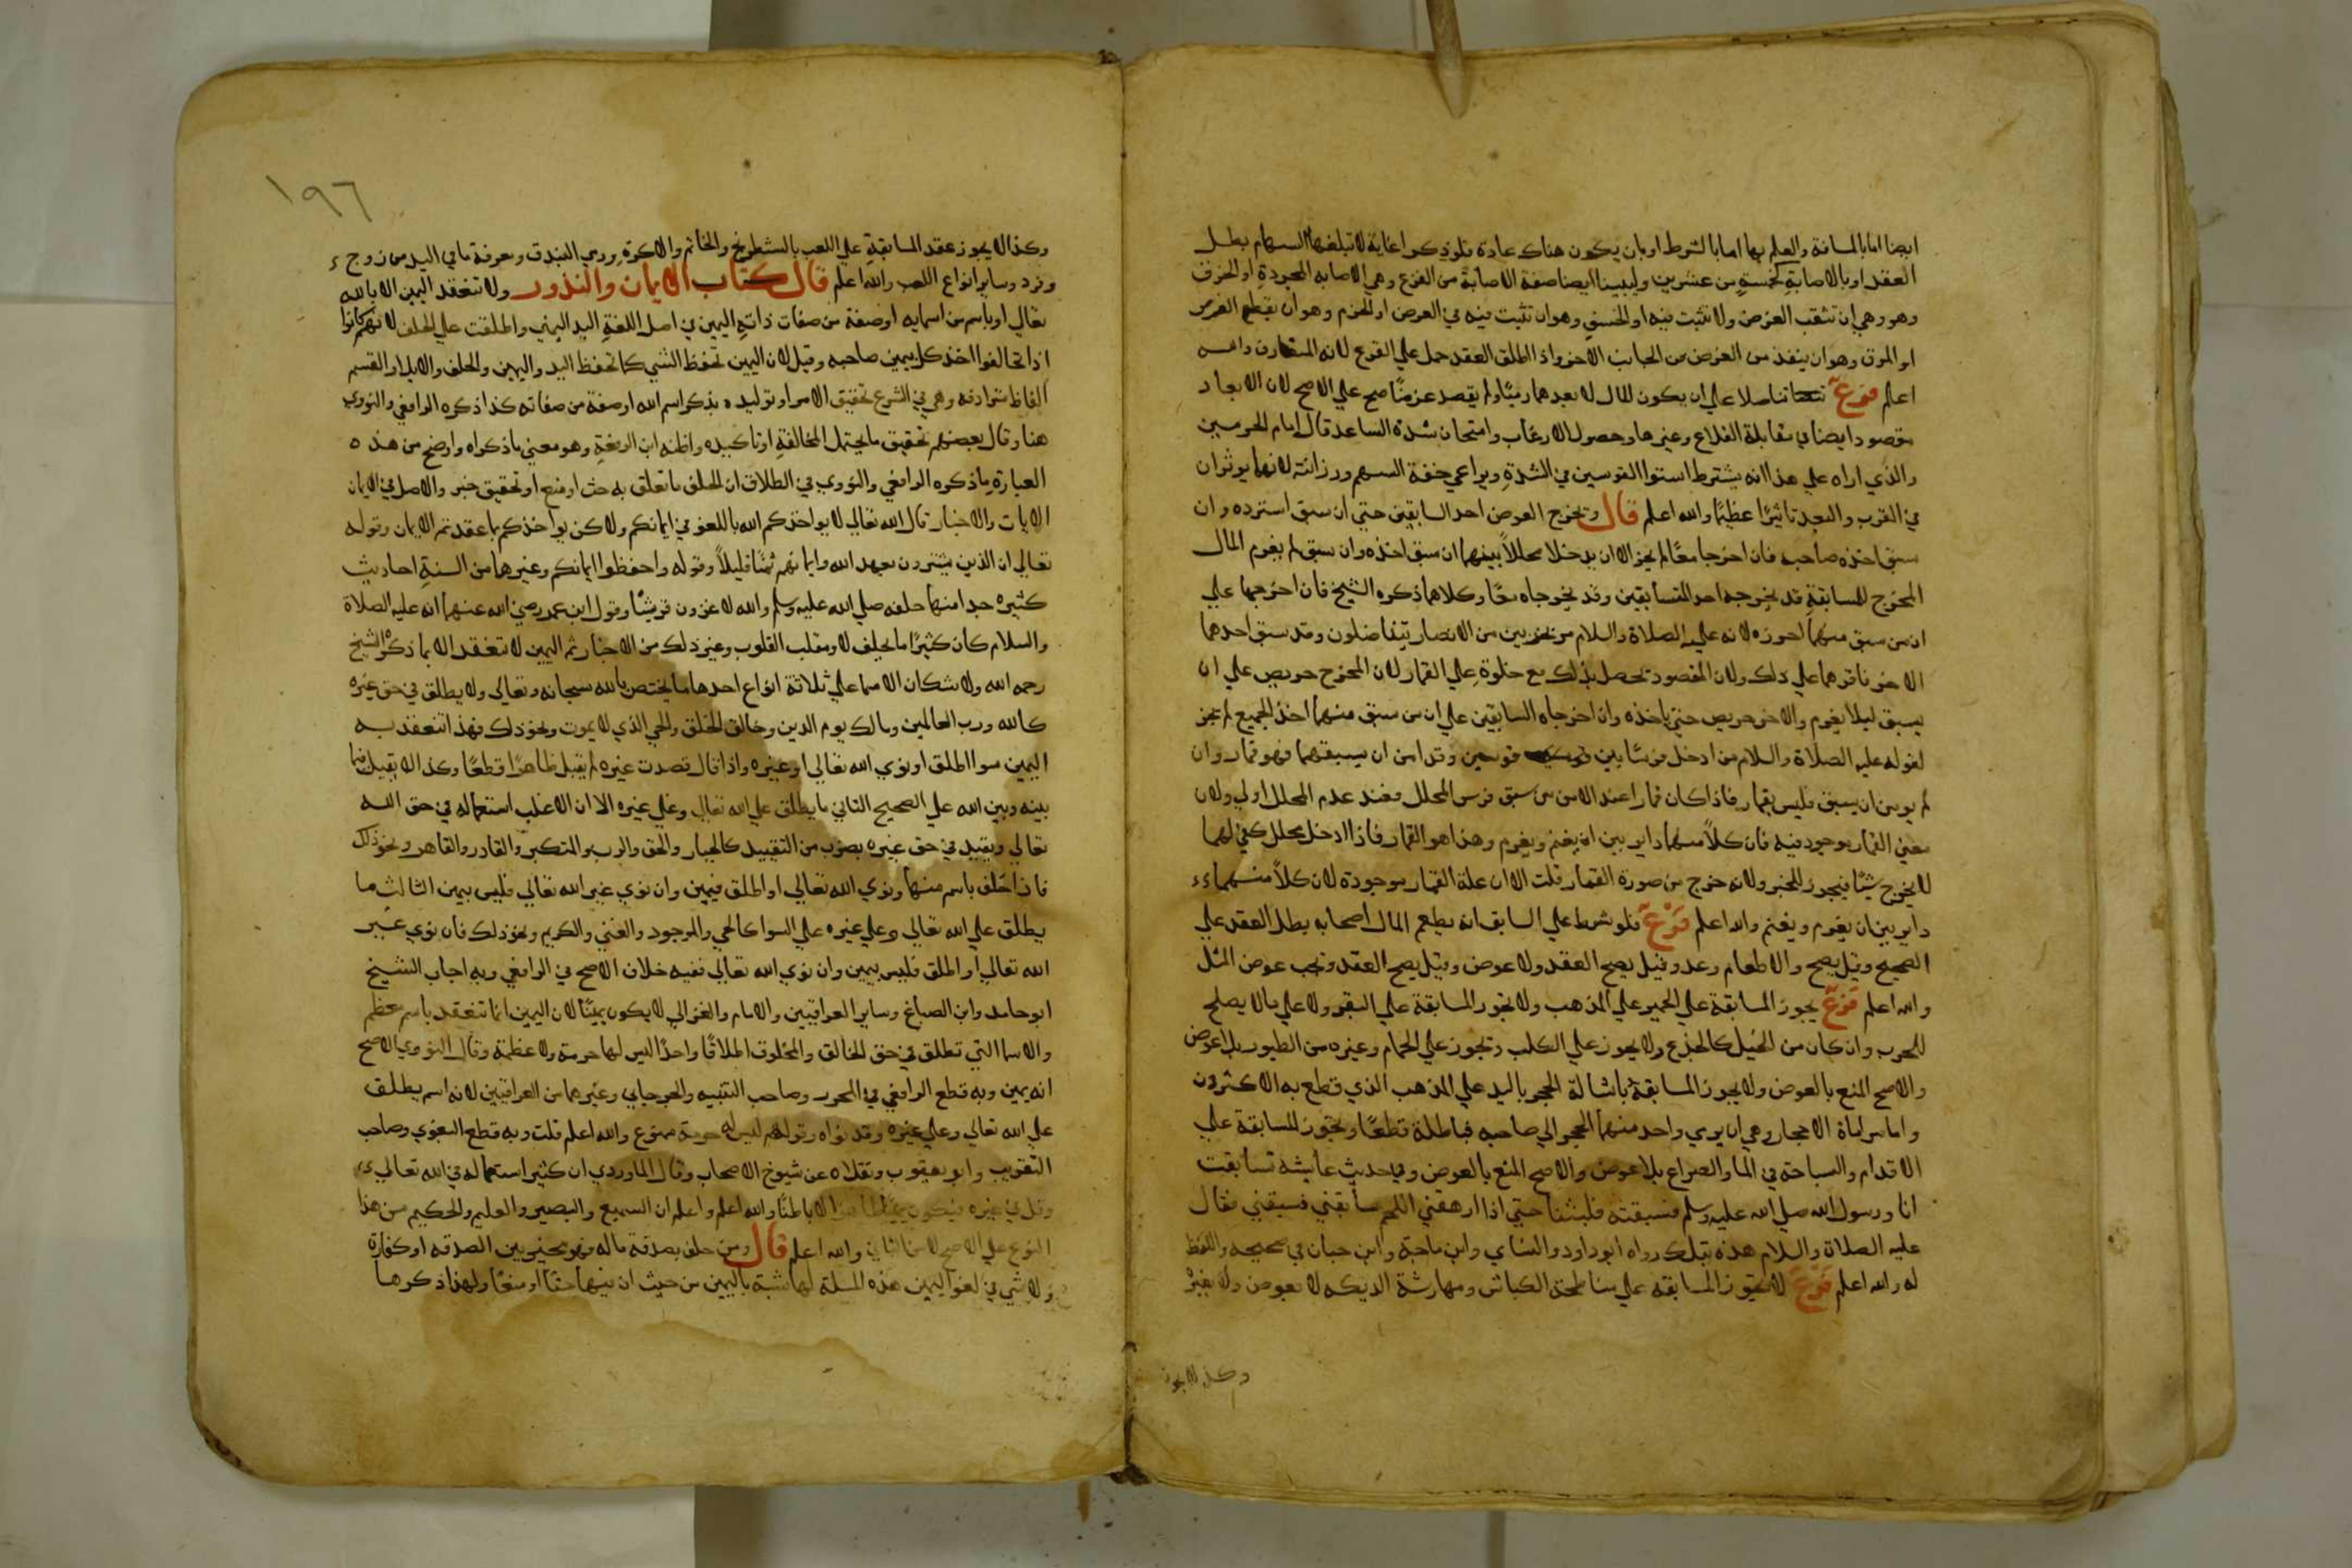 ايضا اما بالمسافة والعلم بها اما بالشرط او بان يكون هناك عادة فلو ذكرا غاية لا تبلغها السهام بطل
العقد او بالاصابة كخمسة من عشرين وليبينا ايضا صفة الاصابة من القرع وهي الاصابه المجردة او الخزق
وهو وهي ان تثقب الغرض ولا تثبت فيه او الخسق وهو ان تثبت فيه في الغرض او الخرم وهو ان يقطع الغرض
او المرق وهو ان ينفذ من الغرض من الجانب الاخر واذا اطلق العقد حمل علي القرع لانه المتعارف والله
اعلم فرع تناضلا علي ان يكون المال لابعدهما رميًا ولم يقصد غرضًا صح علي الاصح لان الابعاد
مقصود ايضا في مقابلة القلاع وغيرها وحصول الارعاب وامتحان شدة الساعد قال امام الحرمين
والذي اراه علي هذا انه يشترط استوا القوسين في الشدة ويراعي خفة السهم ورزانته لانهما يوثران
في القرب والبعد تاثيرًا عظيمًا والله اعلم قال وتخرج العوض احد السابقين حتي ان سبق استرده وان
سبق اخذه صاحبه فان اخرجا معًا لم يجز الا ان يدخلا محللاً بينهما ان سبق اخذه وان سبق لم يغرم المال
المخرج للمسابقة قد يخرجه احد المتسابقين وقد يخرجاه معًا وكلاهما ذكره الشيخ فان اخرجها علي
ان من سبق منهما احرزه لانه عليه الصلاة والسلام مر بحزبين من الانصار يتفاضلون وقد سبق احدهما
الاخر فاقرهما علي ذلك ولان المقصود تحصل بذلك مع خلوة علي القمار لان المخرج حريص علي ان
يسبق ليلا يغرم والاخر حريص حتي ياخذه وان اخرجاه السابقين علي ان من سبق منهما اخذ الجميع لم يجز
لقوله عليه الصلاة والسلام من ادخل فرسًا بين فرسين وقد امن ان يسبقهما فهو قمار وان
لم يومن ان يسبق فليس بقمار فاذا كان قمارا عند الامن من سبق فرس المحلل فعند عدم المحلل اولي ولان
معني القمار موجود فيه فان كلاً منهما داير بين ان يغنم ويغرم وهذا هو القمار فاذا ادخل محلل كفي لهما
لا يخرج شيًا فيجوز للخبر ولانه خرج من صورة القمار قلت الا ان علة القمار موجودة لان كلاً منهما
داير بين ان يغرم ويغنم والله اعلم فرع فلو شرط علي السابق ان يطعم المال اصحابه بطل العقد علي
الصحيح وقيل يصح والاطعام وعد وقيل يصح العقد ولا عوض وقيل يصح العقد وتجب عوض المثل
والله اعلم فرع يجوز المسابقة علي الحمير علي المذهب ولا تجوز المسابقة علي البقر ولا علي ما لا يصلح
للحرب وان كان من الخيل كالجذع ولا يجوز علي الكلب وتجوز علي الحمام وغيره من الطيور بلا عوض
والاصح المنع بالعوض ولا يجوز المسابقة باشالة الحجر باليد علي المذهب الذي قطع به الاكثرون
واما مراماة الاحجار وهي ان يرمي واحد منهما الحجر الي صاحبه فباطلة قطعًا وتجوز المسابقة علي
الاقدام والسباحة في الما والصراع بلا عوض والاصح المنع بالعوض وفي حديث عايشه تسابقت
انا ورسول الله صلي الله عليه وسلم فسبقته فلبثنا حتي اذا ارهقني اللحم سابقني فسبقني فقال
عليه الصلاة والسلام هذه بتلك رواه ابو داود والنساي وابن ماجة وابن حبان في صحيحه واللفظ
له والله اعلم فرع لا تجوز المسابقه علي مناطحة الكباش ومهارشة الديكه لا بعوض ولا بغيره
وكذا لا يجوز
١٩٦
وكذا لا يجوز عقد المسابقة علي اللعب بالشطرنج والخاتم والاكرة ورمي البندق ومعرفة ما في اليد من زوج
وفرد وساير انواع اللعب والله اعلم قال كتاب الايمان والنذور ولا تنعقد اليمين الا بالله
تعالي او باسم من اسمايه او صفة من صفات ذاته اليمين في اصل اللغة اليد اليمني واطلقت علي الحلف لانهم كانوا
اذا تحالفوا اخذ كل بيمين صاحبه وقيل لان اليمين تحفظ الشي كما تحفظ اليد واليمين والحلف والايلا والقسم
الفاظ مترادفه وهي في الشرع تحقيق الامر او توليده بذكر اسم الله او صفة من صفاته كذا ذكره الرافعي والنووي
هنا وقال بعضهم تحقيق ما يحتمل المخالفة او تاكيده واظنه ابن الرفعة وهو معني ما ذكراه واوضح من هذه
العبارة ما ذكره الرافعي والنووي في الطلاق ان الحلف ما تعلق به حث او منع او تحقيق خبر والاصل في الايمان
الايات والاخبار قال الله تعالي لا يواخذكم الله باللغو في ايمانكم ولاكن يواخذكم بما عقدتم الايمان وقوله
تعالي ان الذين يشترون بعهد الله وايمانهم ثمنًا قليلاً وقوله واحفظوا ايمانكم وغيرها من السنة احاديث
كثيره جدا منها حلفه صلي الله عليه وسلم والله لاغزون قريشًا وقول ابن عمر رضي الله عنهما انه عليه الصلاة
والسلام كان كثيرًا ما يحلف لا ومقلب القلوب وغير ذلك من الاخبار ثم اليمين لا تنعقد الا بما ذكره الشيخ
رحمه الله ولا شك ان الاسما علي ثلاثة انواع احدها ما يختص بالله سبحانه وتعالي ولا يطلق في حق غيره
كالله ورب العالمين ومالك يوم الدين وخالق الخلق والحي الذي لا يموت ونحو ذلك فهذا تنعقد به
اليمين سوا اطلق او نوي الله تعالي او غيره واذا قال قصدت غيره لم يقبل ظاهرًا قطعًا وكذا لا يقبل فيما
بينه وبين الله علي الصحيح الثاني ما يطلق علي الله تعالي وعلي غيره الا ان الاغلب استعماله في حق الله
تعالي ويقيد في حق غيره بضرب من التقييد كالجبار والحق والرب والمتكبر والقادر والقاهر ونحو ذلك
فاذا حلف باسم منها ونوي الله تعالي او اطلق فيمين وان نوي غير الله تعالي فليس بيمين الثالث ما
يطلق علي الله تعالي وعلي غيره علي السوا كالحي والموجود والغني والكريم ونحو ذلك فان نوي غير
الله تعالي او اطلق فليس بيمين وان نوي الله تعالي ففيه خلاف الاصح في الرافعي وبه اجاب الشيخ
ابو حامد وابن الصباغ وساير العراقيين والامام والغزالي لا يكون يمينًا لان اليمين انما تنعقد باسم معظم
والاسما التي تطلق في حق الخالق والمخلوق اطلاقًا واحدًا ليس لها حرمة ولا عظمة وقال النووي الاصح
انه يمين وبه قطع الرافعي في المحرر وصاحب التنبيه والجرجاني وغيرهما من العراقيين لانه اسم يطلق
علي الله تعالي وعلي غيره وقد نواه وقولهم ليس له حرمة ممنوع والله اعلم قلت وبه قطع البغوي وصاحب
التقريب وابو يعقوب ونقلاه عن شيوخ الاصحاب وقال الماوردي ان كثير استعماله في الله تعالي
وقل في غيره فيكون يمينًا ظاهرًا لا باطنًا والله اعلم واعلم ان السميع والبصير والعليم والحكيم من هذا
النوع علي الاصح لا من الثاني والله اعلم قال ومن حلف بصدقة ماله فهو مخير بين الصدقه او كفارة
ولا شي في لغو اليمين هذه المسلة لها شبه باليمين من حيث ان فيها حثًا او منعًا ولهذا ذكرها